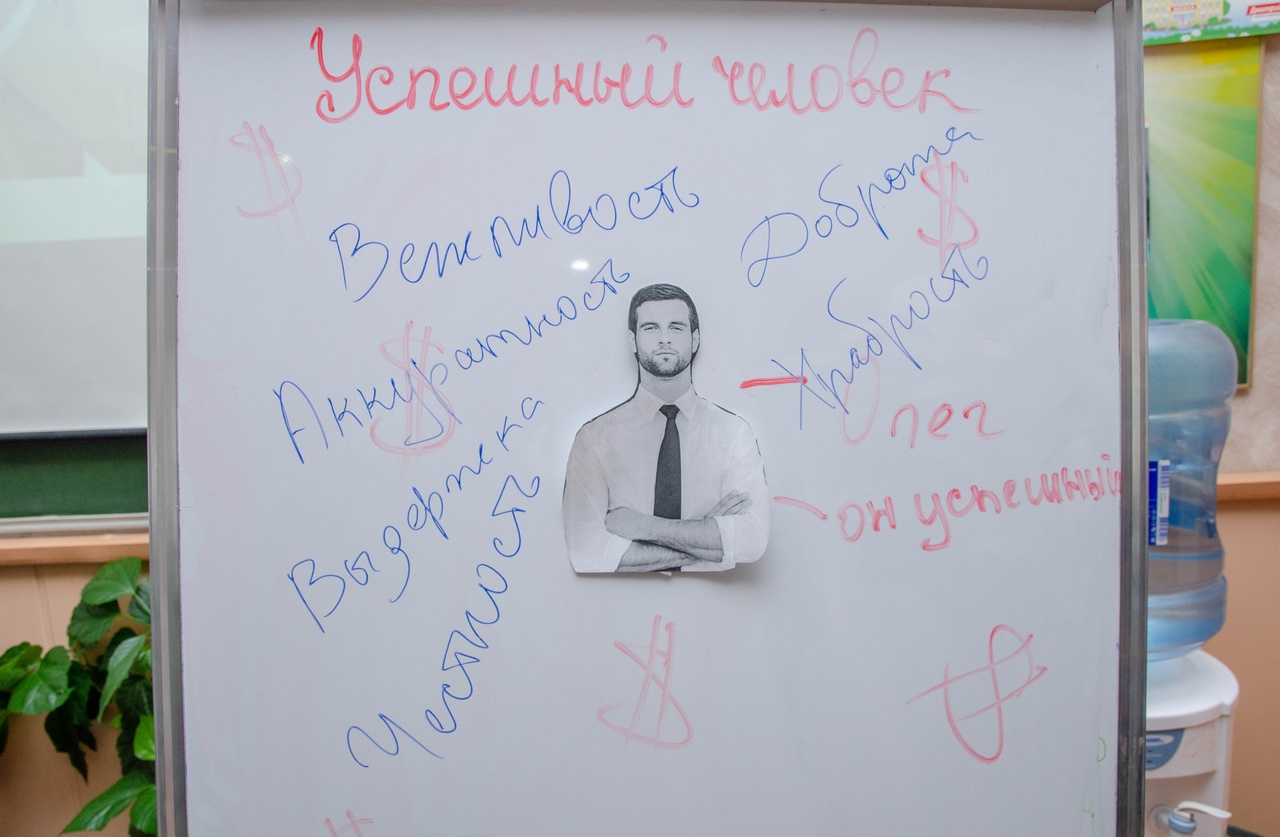 Успешный человек
$
Вежливость
Доброта
$
Аккуратность
$
Храбрость
лег
Выдержка
он успешный
Честность
$